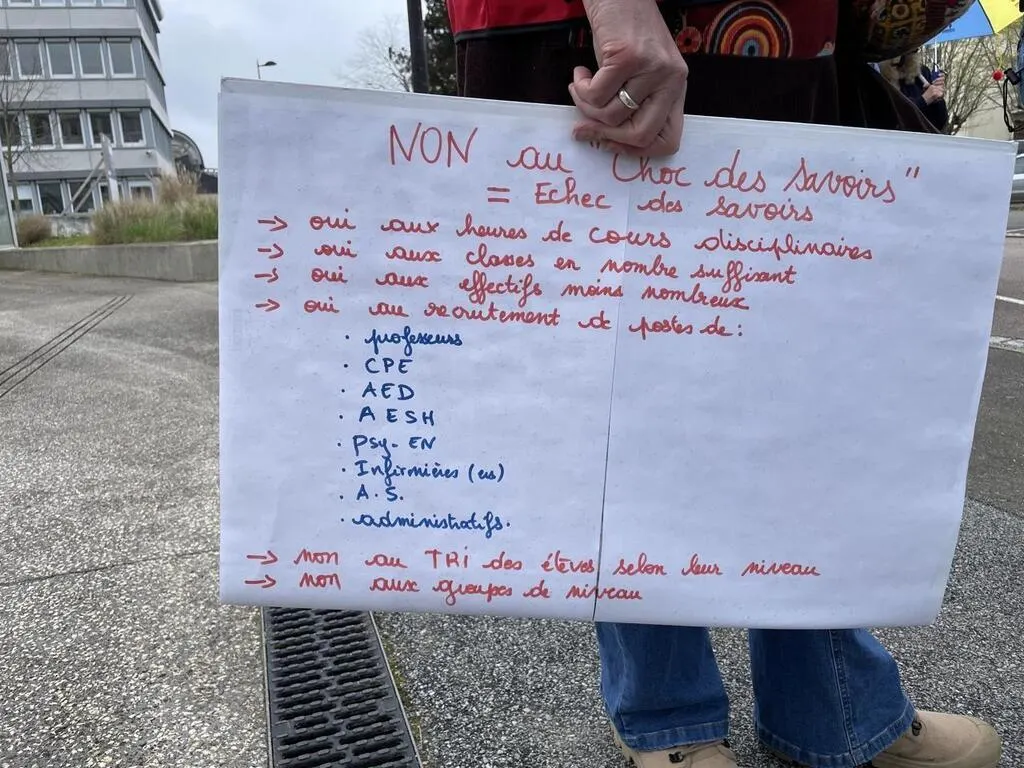 NON au "Choc des savoirs"
= Echec des savoirs
→ oui aux heures de cours disciplinaires
→ oui aux classes en nombre suffisant
→ oui aux effectifs moins nombreux
→ oui au recrutement de postes de :
· professeurs
· CPE
· AED
· AESH
· Psy-EN
· Infirmières (ers)
· A.S.
· administratifs.
→ non au TRI des élèves selon leur niveau
→ non aux groupes de niveau